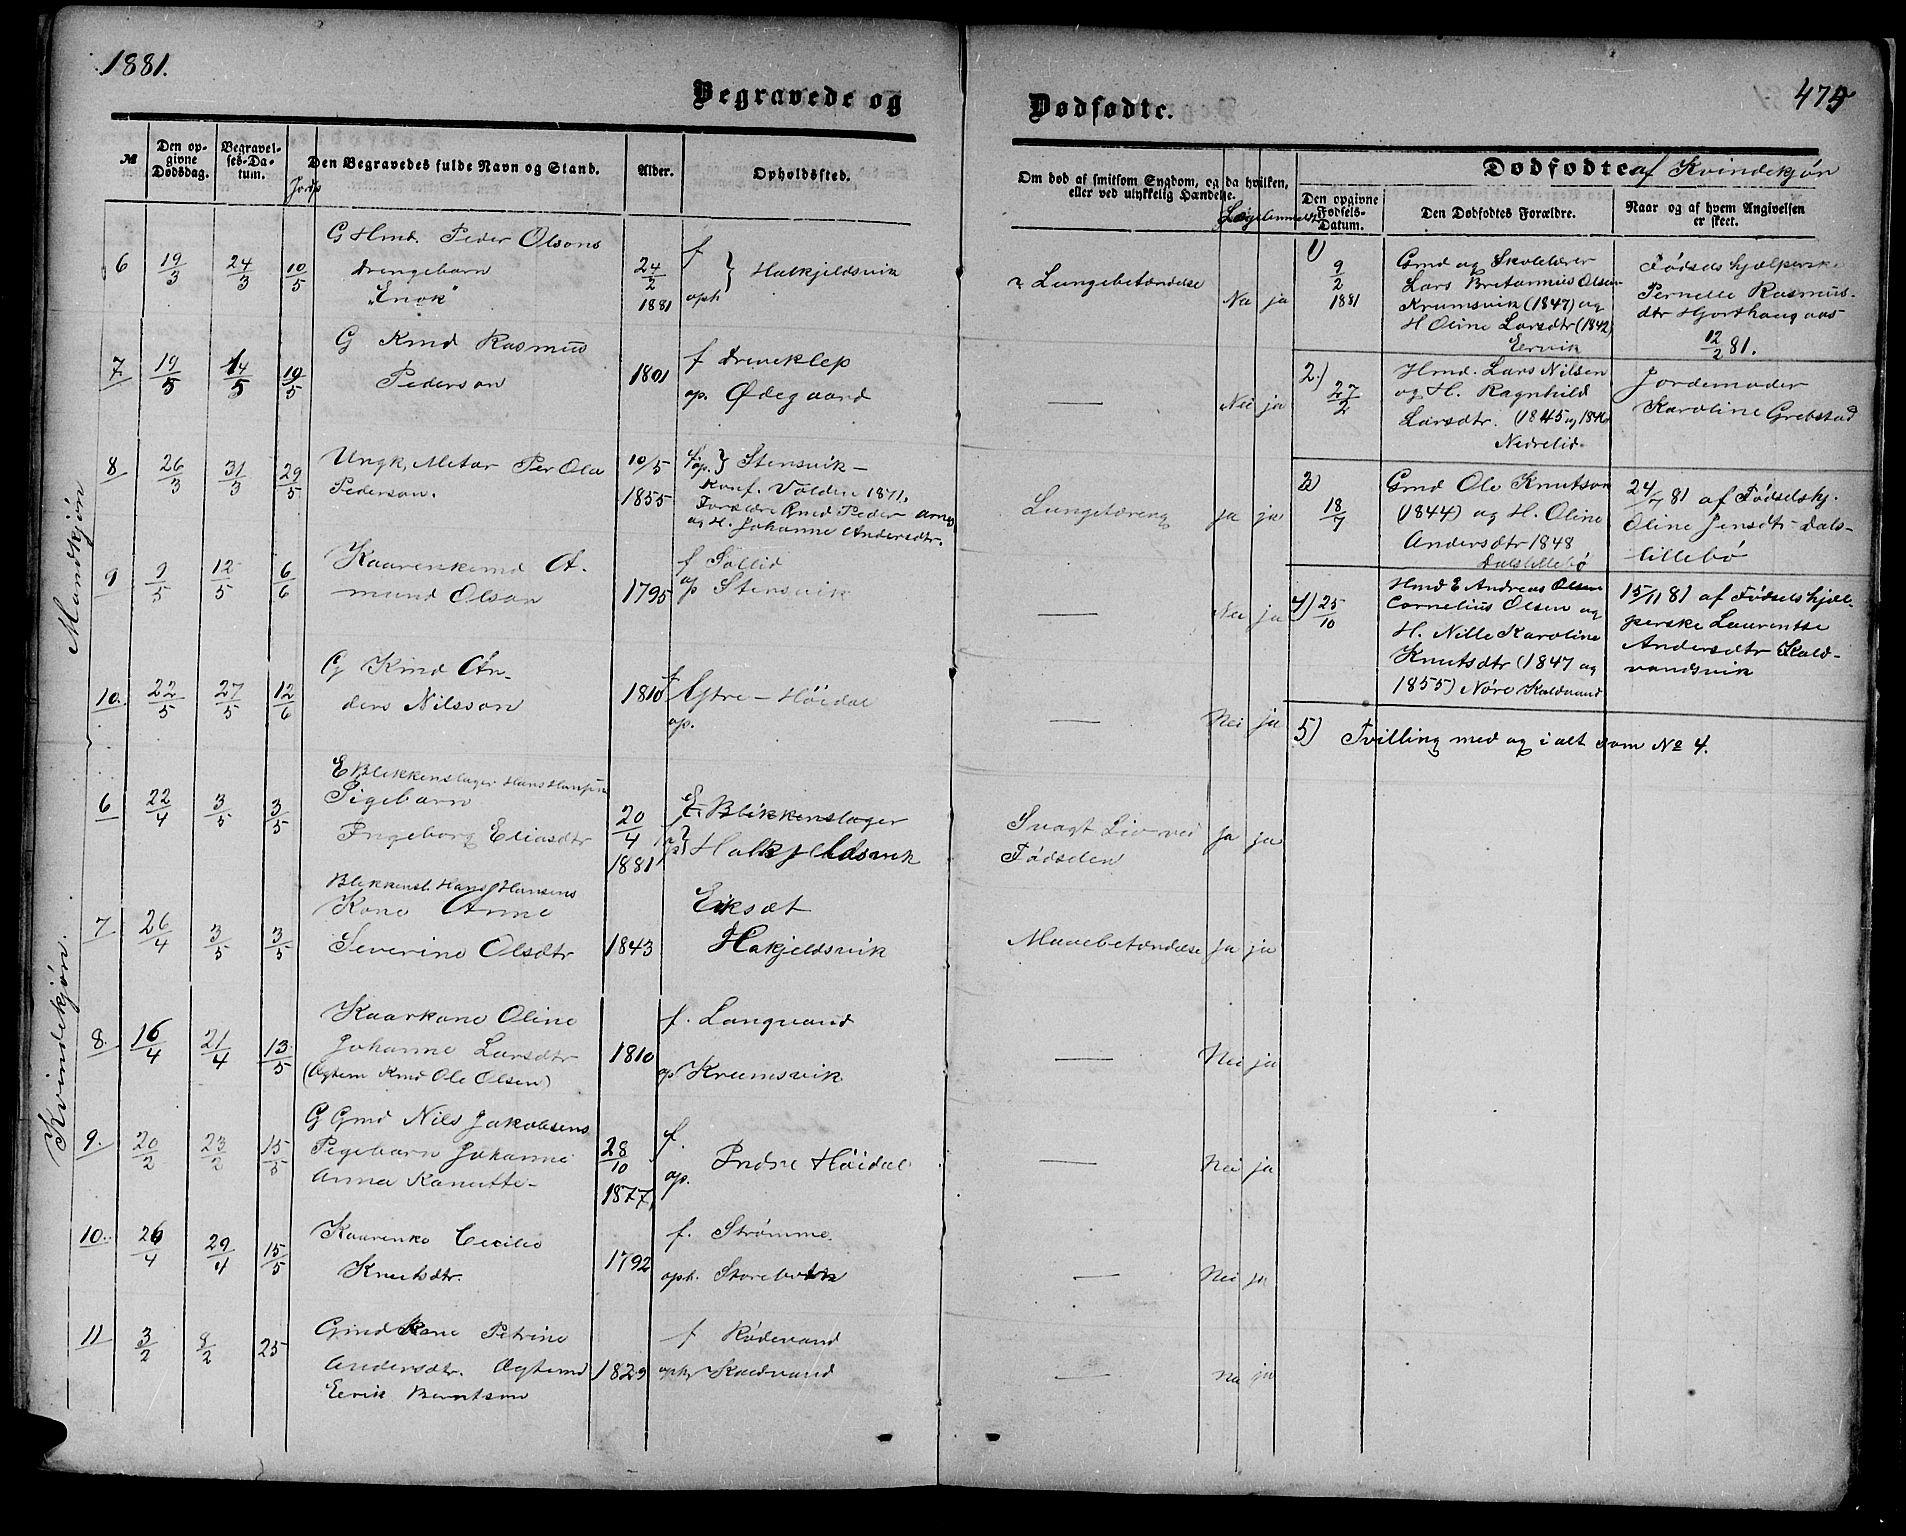 1881.
475
Begravede og
Dødfødte.
№
Den op-
givne
Dødsdag.
Begravel-
ses-Da-
tum.
Jordp
Den Begravedes fulde Navn og Stand.
Alder.
Opholdssted.
Om død af smitsom Sygdom, og da hvilken,
eller ved ulykkelig Hændelse.
Dødfødte af Kvindekjøn
Den opgivne
Fødsels-
Datum.
Den Dødfødtes Forældre.
Naar og af hvem Angivelsen
er skeet.
Mandkjøn
6 19/3 24/3 10/5
G Hmd. Peder Olsons
Drengebarn
"Enok"
24/2
1881
f
oph } Halkjeldsvik
Lungebetændelse
ja
7. 19/5 14/5 19/5
G Kmd Rasmus
Pederson
1801
f Dreveklep
op. Ødegaard
— Nei ja
8 26/3 31/3 29/5
Ungk, Metar Per Ola
Pederson.
10/5
1855
f op. } Stensvik —
Konf. Volden 1871.
Forældre Gmd Peder Arnes
og H. Johanne Andersdtr.
Lungetæring ja ja
9 9/5 12/5 6/6
Kaarenkemd A-
mund Olson
1795
f Sollid
op Stensvik
— Nei ja
10. 22/5 27/5 12/6
G Kmd An-
ders Nilsson
1810
f
op. Ytre - Høidal
— Nei ja
Kvindekjøn.
6 22/4 3/5 3/5
E Blikkenslager Hans Hansens
Pigebarn
Ingeborg Eliasdtr
20/4
1881
E Blikkenslager
Halkjeldsvik
Svagt Liv ved
Fødselen
ja ja
7 26/4 3/5 3/5
Blikkensl. Hans Hansens
Kone Anne
Severine Olsdtr
1843
Eiksæt
Hakjeldsvik
Mavebetændelse ja ja
8. 16/4 21/4 13/5
Kaarkone Oline
Johanne Larsdtr
(Ægtem Kmd Ole Olsen)
1810
f. Langvand
op Krumsvik
— Nei ja
9. 20/2 23/2 15/5
G Gmd Nils Jakobsens
Pigebarn Johanne
Anna Kanutte-
28/10
1877,
f.
op. Indre Høidal
— Nei ja
10. 26/4 29/4 15/5
Kaarenke Cecilie
Knutsdtr.
1792
f. Strømme.
oph.
— Nei ja
11 3/2 9/2 25
Gmd Kone Petrine
Andersdtr. Ægtemd
Eerik Berntsen
1829
f Rødevand
oph Kaldvand
— Nei ja
1)
9/2
1881
Gmd og Skolelærer
Lars Bretanius Olsen
Krumsvik (1847) og
H Oline Larsdtr (1842)
Eervik
Fødselshjælperske
Pernelle Rasmus-
dtr Hjorthaug aas-
12/2 81.
2.)
27/2
Hmd. Lars Nilsen
og H. Ragnhild
Larsdtr. (1845 og 1846
Nedrelid
Jordemoder
Karoline Grebstad
3)
18/7
Gmd Ole Knutson
(1844) og H. Oline
Andersdtr 1848
Dalslillebø
24/7 81 af Fødselshj.
Oline Jensdtr Dals-
lillebø
4) 25/10
Hmd E Andreas Olsen
Cornelius Olsen og
H. Nille Karoline
Knutsdtr (1847 og
1855) Nøre Kaldvand
15/11 81 af Fødselshjæl-
perske Laurentse
Andersdtr Kald-
vandsvik
5) Tvilling med og i alt som № 4.